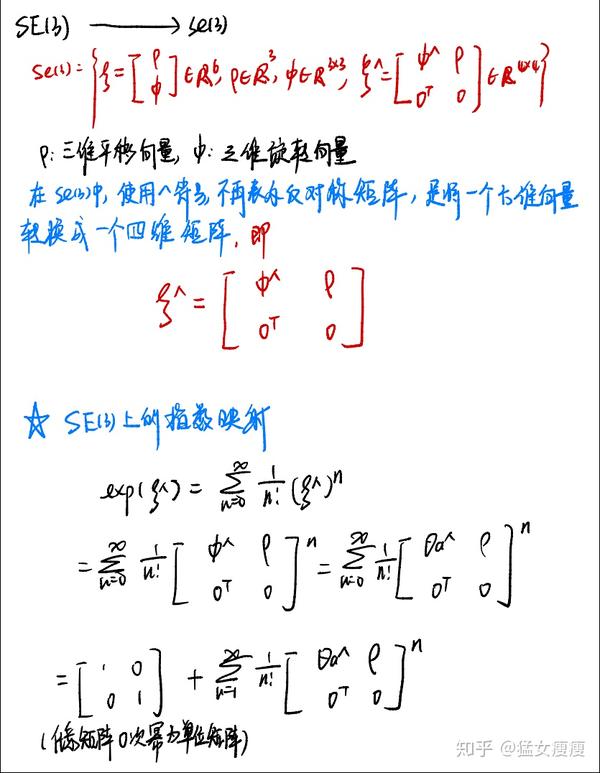 SE(3) ⟶ se(3)
se(3) = { ξ = [ρ; ϕ] ∈ R⁶, ρ ∈ R³, ϕ ∈ R³ˣ³, ξ^ = [ϕ^ ρ; 0ᵀ 0] ∈ R⁴ˣ⁴ }
ρ: 三维平移向量, ϕ: 三维旋转向量
在 se(3)中, 使用^符号, 不再表示反对称矩阵, 是将一个六维向量
转换成一个四维矩阵, 即
ξ^ = [ϕ^ ρ; 0ᵀ 0]
☆ SE(3)上的指数映射
exp(ξ^) = ∑_{n=0}^{∞} 1/n! (ξ^)ⁿ
= ∑_{n=0}^{∞} 1/n! [ϕ^ ρ; 0ᵀ 0]ⁿ = ∑_{n=0}^{∞} 1/n! [θa^ ρ; 0ᵀ 0]ⁿ
= [1 0; 0 1] + ∑_{n=1}^{∞} 1/n! [θa^ ρ; 0ᵀ 0]ⁿ
(任意矩阵0次幂为单位矩阵)
知乎 @猛女瘦瘦